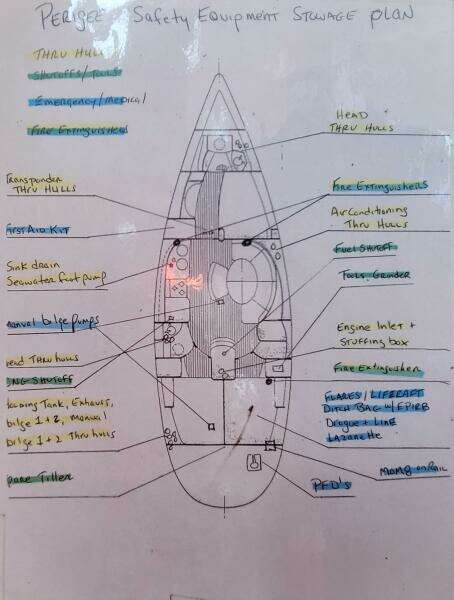 PERIGEE Safety Equipment Stowage plan
THRU HULL
SHUTOFFS/TOOLS
Emergency/medical
FIRE Extinguisher
HEAD
THRU HULLS
Transponder
THRU HULLS
FIRE Extinguishers
First Aid Kit
Air Conditioning
Thru Hulls
Fuel Shutoff
Sink drain
Seawater foot pump
Tools, Grinder
manual bilge pumps
Engine Inlet +
Stuffing box
head THRU hulls
LPNG SHUTOFF
Fire Extinguisher
Holding Tank, Exhaust,
bilge 1+2, manual
bilge 1+2 Thru hulls
FLARES/LIFERAFT
DITCH BAG w/EPIRB
Drogue + Line
Lazarette
Spare Tiller
MOM8 on RAIL
PFD's